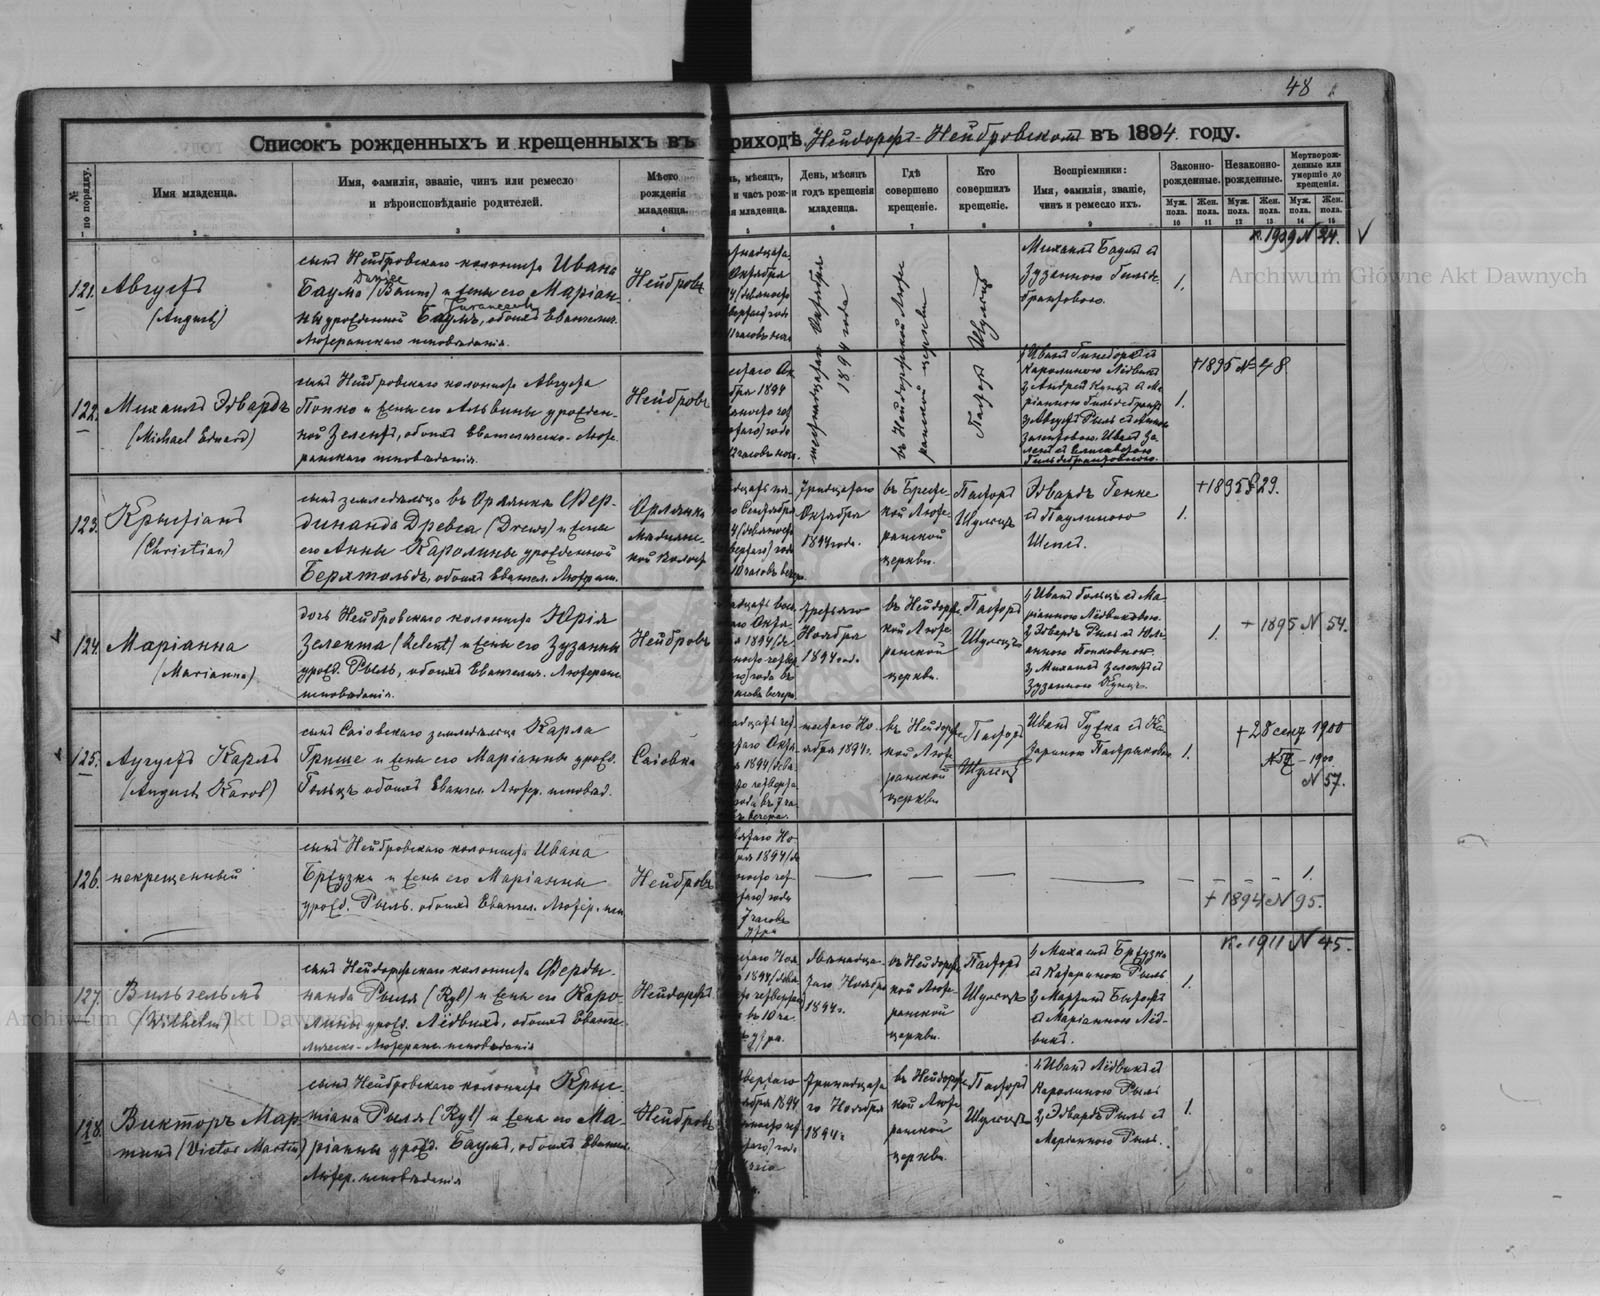 48
Списокъ рожденныхъ и крещенныхъ въ приходѣ Нейдорфъ-Нейбровскомъ въ 1894. году.
№ по порядку.
Имя младенца.
Имя, фамилія, званіе, чинъ или ремесло
и вѣроисповѣданіе родителей.
Мѣсто
рожденія
младенца.
мѣсяцъ,
и часъ рож-
младенца.
День, мѣсяцъ
и годъ крещенія
младенца.
Гдѣ
совершено
крещеніе.
Кто
совершилъ
крещеніе.
Воспріемники:
Имя, фамилія, званіе,
чинъ и ремесло ихъ.
Законно-
рожденные.
Незаконно-
рожденные.
Мертворож-
денные или
умершіе до
крещенія.
Муж. пола.
Жен. пола.
Муж. пола.
Жен. пола.
Муж. пола.
Жен. пола.
1 2 3 4 5 6 7 8 9 10 11 12 13 14 15
121.
Августъ
(August)
сынъ Нейбровскаго колониста Ивана
Баума (Baum) и жены его Маріан-
ны урожденной Баумъ, обоихъ Евангелич.
Лютеранскаго исповѣданія.
Нейбровъ
Октября
часовъ
шестнадцатаго Октября
1894 года
въ Нейдорфской Люте-
ранской церкви
Пасторъ Шульцъ
Михаилъ Баумъ съ
Зузанною Гильде-
брантовою.
1.
к. 1909 N 24. V
122.
Михаилъ Эдвардъ
(Michael Eduard)
сынъ Нейбровскаго колониста Августа
Попко и жены его Альвины урожден-
ной Зелентъ, обоихъ Евангелическо-Люте-
ранскаго исповѣданія.
Нейбровъ
1894
1, Иванъ Гинеборхъ съ
Каролиною Лёдвихъ
2, Андрей Кунцъ съ Ма-
ріанною Гильдебрантъ
3, Августъ Рыль съ
Зелентовою. Иванъ Зе-
лентъ съ Елисаветою
Гильдебрантовою.
1.
+1895 № 48
123.
Крыстіанъ
(Christian)
сынъ земледѣльца въ Орлянкѣ Фер-
динанда Древса (Drews) и жены
его Анны Каролины урожденной
Берхтольдъ, обоихъ Евангел. Лютеран.
Орлянка
кой волост.
Сентября
10 часовъ вечера
Тридцатаго
Октября
1894 года.
въ Брест-
кой Люте-
ранской
церкви.
Пасторъ
Шульцъ
Эдвардъ Генке
съ Паулиною
Шенъ.
1.
+1895 № 29.
124.
Маріанна
(Marianna)
дочь Нейбровскаго колониста Юрія
Зелента (Zelent) и жены его Зузанны
урожд. Рыль, обоихъ Евангелич. Лютеранс.
исповѣданія.
Нейбровъ
1894
часовъ вечера
третьяго
Ноября
1894 года.
въ Нейдорфс-
кой Люте-
ранской
церкви.
Пасторъ
Шульцъ
1, Иванъ Гольцъ съ Ма-
ріанною Лёдвиховою.
2, Эдвардъ Рыль съ Юлі-
анною Попковною.
3, Михаилъ Зелентъ съ
Зузанною Кунцъ.
1.
+ 1895. N 54.
125.
Аугустъ Карлъ
(August Karol)
сынъ Саіовскаго земледѣльца Карла
Грише и жены его Маріанны урожд.
Гольцъ обоихъ Евангел. Лютер. исповѣд.
Саіовка
1894
вечера.
шестаго Но-
ября 1894 г.
въ Нейдорфс-
кой Люте-
ранской
церкви.
Пасторъ
Шульцъ
1.
+ 28 сент 1900
1900
N 57.
126.
некрещенный
сынъ Нейбровскаго колониста Ивана
Брузки и жены его Маріанны
урожд. Рыль. обоихъ Евангел. Лютер. исп.
Нейбровъ
1894
7 часовъ
утра
1.
+ 1894 N 95.
127.
Вильгельмъ
(Wilhelm)
сынъ Нейдорфскаго колониста Ферды-
нанда Рыля (Ryl) и жены его Каро-
лины урожд. Лёдвихъ, обоихъ Еванге-
лическо-Лютеранс. исповѣданія
Нейдорфъ
1894
въ 10 ча.
утра.
двѣнадца-
таго Ноября
1894 г.
въ Нейдорфс-
кой Люте-
ранской
церкви.
Пасторъ
Шульцъ
1, Михаилъ Брузки
съ Катариною Рыль
2, Мартинъ Бытофтъ
съ Маріанною Лёд-
вихъ.
1.
к. 1911 N 45.
128.
Викторъ Мар-
тинъ (Victor Martin)
сынъ Нейбровскаго колониста Крыс-
тіана Рыля (Ryl) и жены его Ма-
ріанны урожд. Баумъ, обоихъ Евангел.
Лютер. исповѣданія
Нейбровъ
1894
тринадцата-
го Ноября
1894 г.
въ Нейдорфс-
кой Люте-
ранской
церкви.
Пасторъ
Шульцъ
1, Иванъ Лёдвихъ съ
Каролиною Рыль
2, Эдвардъ Рыль съ
Маріанною Рыль.
1.
Archiwum Główne Akt Dawnych
Archiwum Główne Akt Dawnych